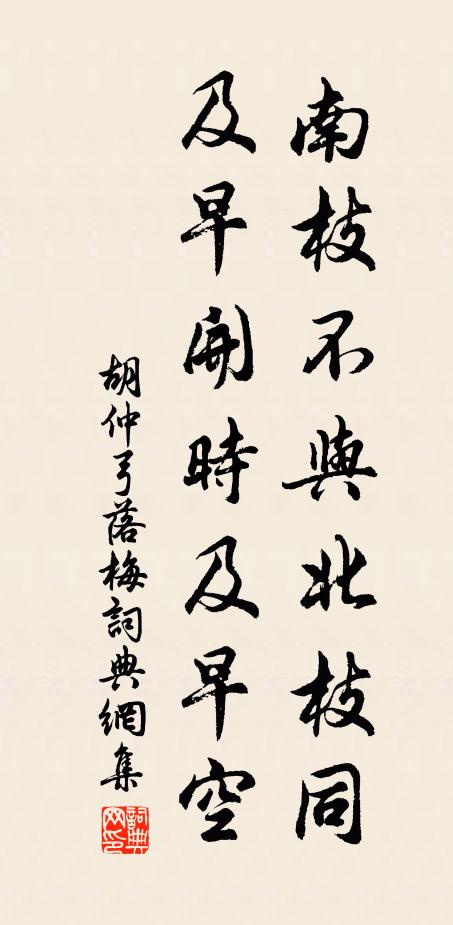 南枝不與北枝同
及早開時及早空
胡仲弓落梅詞典網集
詞典網印